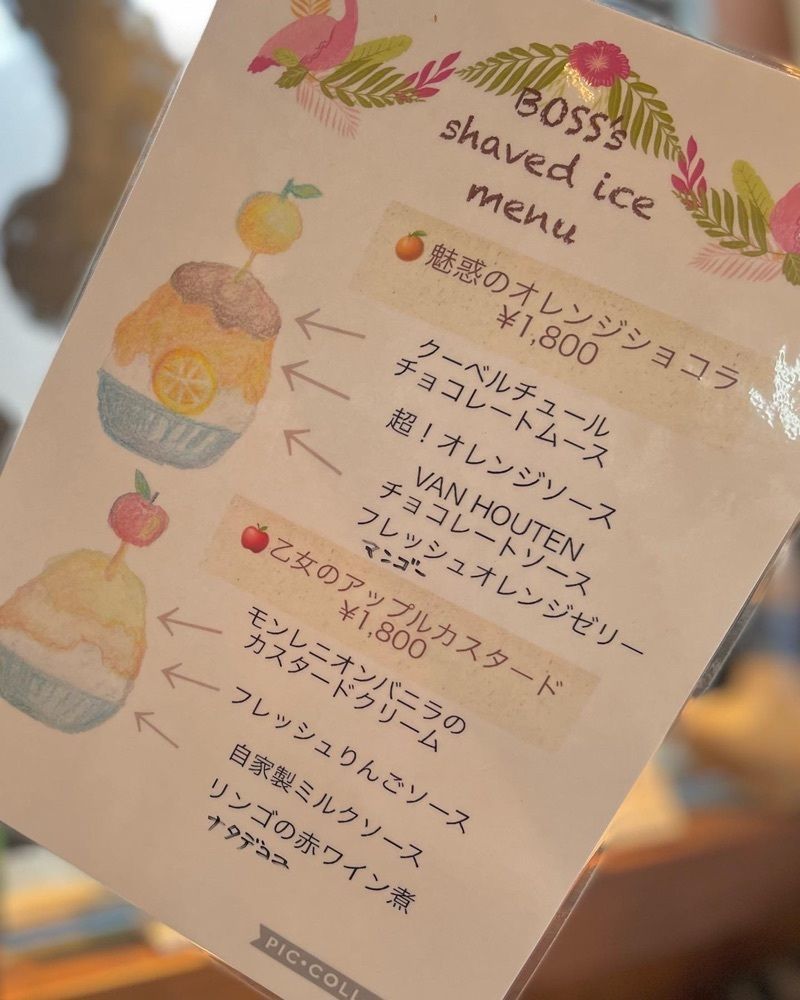 BOSS's
shaved ice
menu
魅惑のオレンジショコラ
¥1,800
クーベルチュール
チョコレートムース
超！オレンジソース
VAN HOUTEN
チョコレートソース
フレッシュオレンジゼリー
マンゴー
乙女のアップルカスタード
¥1,800
モンレニオンバニラの
カスタードクリーム
フレッシュりんごソース
自家製ミルクソース
リンゴの赤ワイン煮
ナタデココ
PIC•COLL